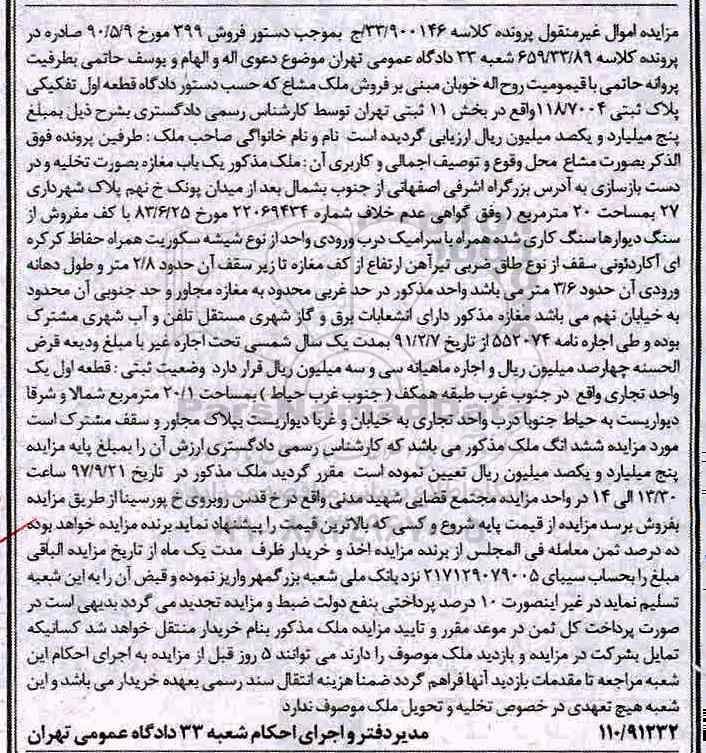 مزایده اموال غیرمنقول پرونده کلاسه ۳۳/۹۰۰۱۴۶/ج بموجب دستور فروش ۳۹۹ مورخ ۹۰/۵/۹ صادره در
پرونده کلاسه ۶۵۹/۳۳/۸۹ شعبه ۳۳ دادگاه عمومی تهران موضوع دعوی اله و الهام و یوسف حاتمی بطرفیت
پروانه حاتمی با قیمومیت روح اله خوبان مبنی بر فروش ملک مشاع که حسب دستور دادگاه قطعه اول تفکیکی
پلاک ثبتی ۱۱۸/۷۰۰۴ واقع در بخش ۱۱ ثبتی تهران توسط کارشناس رسمی دادگستری بشرح ذیل بمبلغ
پنج میلیارد و یکصد میلیون ریال ارزیابی گردیده است نام و نام خانواگی صاحب ملک : طرفین پرونده فوق
الذکر بصورت مشاع محل وقوع و توصیف اجمالی و کاربری آن : ملک مذکور یک باب مغازه بصورت تخلیه و در
دست بازسازی به آدرس بزرگراه اشرفی اصفهانی از جنوب بشمال بعد از میدان پونک خ نهم پلاک شهرداری
۲۷ بمساحت ۲۰ مترمربع ( وفق گواهی عدم خلاف شماره ۲۲۰۶۹۴۳۴ مورخ ۸۳/۶/۲۵ با کف مفروش از
سنگ دیوارها سنگ کاری شده همراه با سرامیک درب ورودی واحد از نوع شیشه سکوریت همراه حفاظ کرکره
ای آکاردئونی سقف از نوع طاق ضربی تیرآهن ارتفاع از کف مغازه تا زیر سقف آن حدود ۲/۸ متر و طول دهانه
ورودی آن حدود ۳/۶ متر می باشد واحد مذکور در حد غربی محدود به مغازه مجاور و حد جنوبی آن محدود
به خیابان نهم می باشد مغازه مذکور دارای انشعابات برق و گاز شهری مستقل تلفن و آب شهری مشترک
بوده و طی اجاره نامه ۵۵۲۰۷۴ از تاریخ ۹۱/۲/۷ بمدت یک سال شمسی تحت اجاره غیر با مبلغ ودیعه قرض
الحسنه چهارصد میلیون ریال و اجاره ماهیانه سی و سه میلیون ریال قرار دارد وضعیت ثبتی : قطعه اول یک
واحد تجاری واقع در جنوب غرب طبقه همکف ( جنوب غرب حیاط ) بمساحت ۲۰/۱ مترمربع شمالا و شرقا
دیواریست به حیاط جنوبا درب واحد تجاری به خیابان و غربا دیواریست بپلاک مجاور و سقف مشترک است
مورد مزایده ششد انگ ملک مذکور می باشد که کارشناس رسمی دادگستری ارزش آن را بمبلغ پایه مزایده
پنج میلیارد و یکصد میلیون ریال تعیین نموده است مقرر گردید ملک مذکور در تاریخ ۹۷/۹/۲۱ ساعت
۱۳/۳۰ الی ۱۴ در واحد مزایده مجتمع قضایی شهید مدنی واقع در خ قدس روبروی خ پورسینا از طریق مزایده
بفروش برسد مزایده از قیمت پایه شروع و کسی که بالاترین قیمت را پیشنهاد نماید برنده مزایده خواهد بوده
ده درصد ثمن معامله فی المجلس از برنده مزایده اخذ و خریدار ظرف مدت یک ماه از تاریخ مزایده الباقی
مبلغ را بحساب سیبای ۲۱۷۱۲۹۰۷۹۰۰۵ نزد بانک ملی شعبه بزرگمهر واریز نموده و قبض آن را به این شعبه
تسلیم نماید در غیر اینصورت ۱۰ درصد پرداختی بنفع دولت ضبط و مزایده تجدید می گردد بدیهی است در
صورت پرداخت کل ثمن در موعد مقرر و تایید مزایده ملک مذکور بنام خریدار منتقل خواهد شد کسانیکه
تمایل بشرکت در مزایده و بازدید ملک موصوف را دارند می توانند ۵ روز قبل از مزایده به اجرای احکام این
شعبه مراجعه تا مقدمات بازدید آنها فراهم گردد ضمنا هزینه انتقال سند رسمی بعهده خریدار می باشد و این
شعبه هیچ تعهدی در خصوص تخلیه و تحویل ملک موصوف ندارد
۱۱۰/۹۱۲۳۲ مدیر دفتر و اجرای احکام شعبه ۳۳ دادگاه عمومی تهران
ParsNamadData